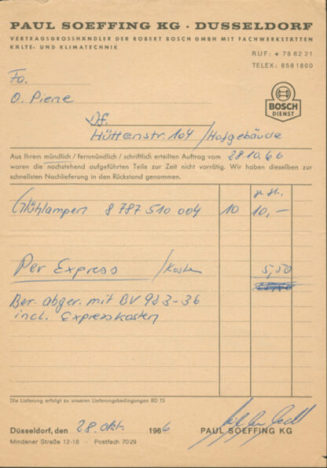 PAUL SOEFFING KG · DUSSELDORF
VERTRAGSGROSSHÄNDLER DER ROBERT BOSCH GMBH MIT FACHWERKSTÄTTEN
KÄLTE- UND KLIMATECHNIK
RUF: * 78 62 21
TELEX: 8581800
Fa.
O. Piene
BOSCH
DIENST
Df.
Hüttenstr. 104 / Hofgebäude
Aus Ihrem mündlich / fernmündlich / schriftlich erteilten Auftrag vom 28.10.66
waren die nachstehend aufgeführten Teile zur Zeit nicht vorrätig. Wir haben dieselben zur
schnellsten Nachlieferung in den Rückstand genommen.
Glühlampen 8 787 510 004 10 10,—
Per Express / Kosten 5,50
Ber. abger. mit BV 983-36
incl. Expresskosten
Die Lieferung erfolgt zu unseren Lieferungsbedingungen BD 15
Düsseldorf, den 28. Okt. 1966 PAUL SOEFFING KG
Mindener Straße 12-18 · Postfach 7029